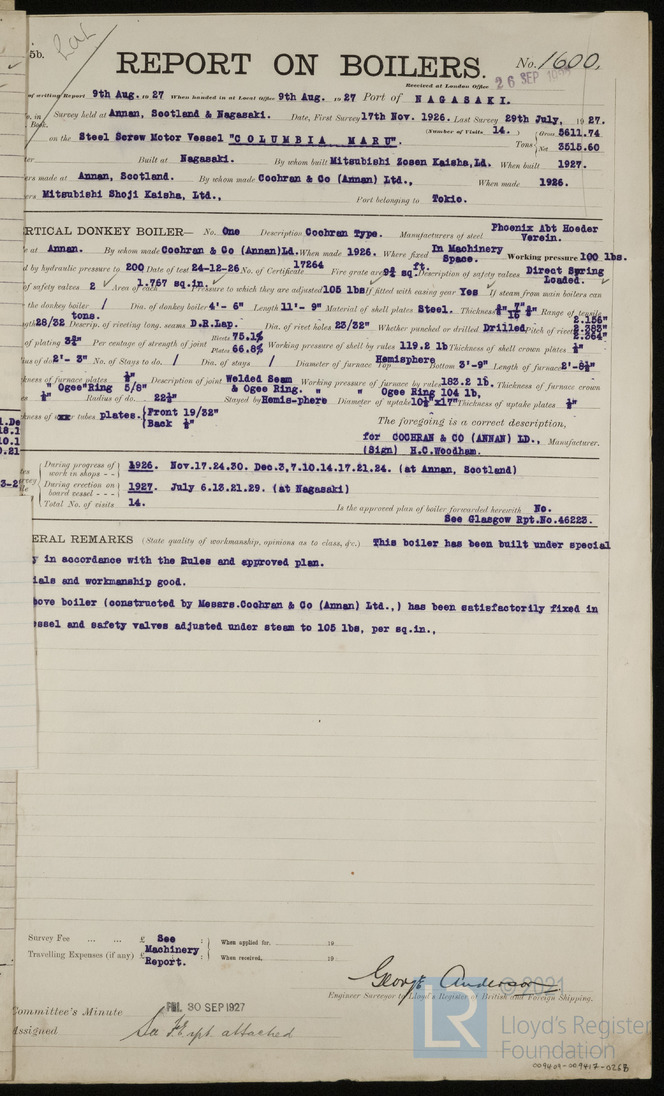 5b.
REPORT ON BOILERS. No. 1600.
Received at London Office 26 SEP
of writing Report 9th Aug. 1927 When handed in at Local Office 9th Aug. 1927 Port of NAGASAKI.
Survey held at Annan, Scotland & Nagasaki. Date, First Survey 17th Nov. 1926. Last Survey 29th July, 1927.
Book. (Number of Visits 14. )
on the Steel Screw Motor Vessel "COLUMBIA MARU". Tons { Gross 5611.74 Net 3515.60
Built at Nagasaki. By whom built Mitsubishi Zosen Kaisha,Ld. When built 1927.
ers made at Annan, Scotland. By whom made Cochran & Co (Annan) Ltd., When made 1926.
ers Mitsubishi Shoji Kaisha, Ltd., Port belonging to Tokio.
RTICAL DONKEY BOILER— No. One Description Cochran Type. Manufacturers of steel Phoenix Abt Hoeder Verein.
e at Annan. By whom made Cochran & Co (Annan)Ld. When made 1926. Where fixed In Machinery Space. Working pressure 100 lbs.
d by hydraulic pressure to 200 Date of test 24-12-26 No. of Certificate 17264 Fire grate area 9¾ sq ft. Description of safety valves Direct Spring Loaded.
of safety valves 2 Area of each 1.767 sq.in. Pressure to which they are adjusted 105 lbs If fitted with easing gear Yes If steam from main boilers can
the donkey boiler / Dia. of donkey boiler 4'- 6" Length 11'- 9" Material of shell plates Steel. Thickness Range of tensile
gth 28/32 tons. Descrip. of riveting long. seams D.R.Lap. Dia. of rivet holes 23/32" Whether punched or drilled Drilled Pitch of rivets 2.156" 2.383" 2.364"
of plating 3¾" Per centage of strength of joint Rivets 75.1% Plates 66.8% Working pressure of shell by rules 119.2 lb Thickness of shell crown plates ½"
ius of do. 2'- 3" No. of Stays to do. / Dia. of stays / Diameter of furnace Top Hemisphere Bottom 3'-9" Length of furnace 2'-8½"
kness of furnace plates ½" Description of joint Welded Seam Working pressure of furnace by rules 183.2 lb. Thickness of furnace crown
" Ogee Ring 5/8" & Ogee Ring. " " Ogee Ring 104 lb,
s ½" Radius of do. 22½" Stayed by Hemis-phere Diameter of uptake 10½"x17" Thickness of uptake plates ½"
kness of xx tubes plates. {Front 19/32" {Back ½"
The foregoing is a correct description,
for COCHRAN & CO (ANNAN) LD., Manufacturer.
(Sign) H.C.Woodham.
During progress of work in shops - - } 1926. Nov.17.24.30. Dec.3,7.10.14.17.21.24. (at Annan, Scotland)
During erection on board vessel - - - } 1927. July 6.13.21.29. (at Nagasaki)
Total No. of visits 14. Is the approved plan of boiler forwarded herewith No.
See Glasgow Rpt.No.46223.
ERAL REMARKS (State quality of workmanship, opinions as to class, &c.) This boiler has been built under special
y in accordance with the Rules and approved plan.
ials and workmanship good.
bove boiler (constructed by Messrs.Cochran & Co (Annan) Ltd.,) has been satisfactorily fixed in
essel and safety valves adjusted under steam to 105 lbs, per sq.in.,
Survey Fee ... ... £ See : : When applied for, 19
Travelling Expenses (if any) £ Machinery Report. : : When received, 19
George Anderson
Engineer Surveyor to Lloyd's Register of British and Foreign Shipping.
Committee's Minute FRI. 30 SEP 1927
Assigned See rpt. attached
© 2021
LR
Lloyd's Register
Foundation
009409-009417-0268